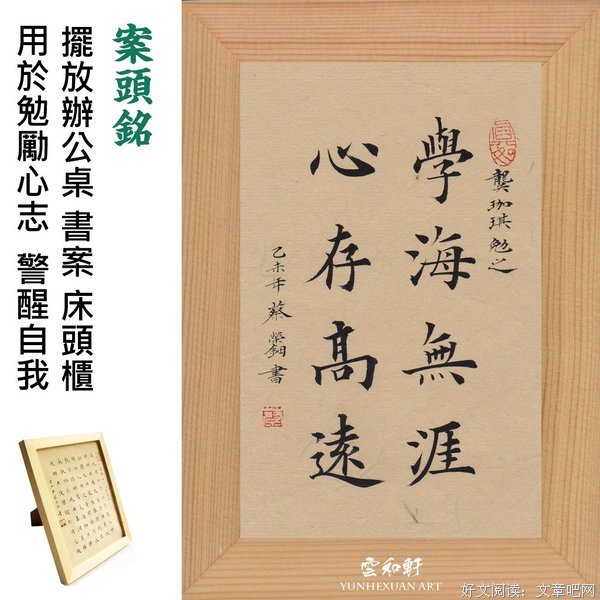 案頭銘
擺放辦公桌 書案 床頭櫃
用於勉勵心志 警醒自我
龔珈琪勉之
學海無涯
心存高遠
乙未年 蔡榮錮書
雲和軒
YUNHEXUAN ART
好文阅读:文章吧网